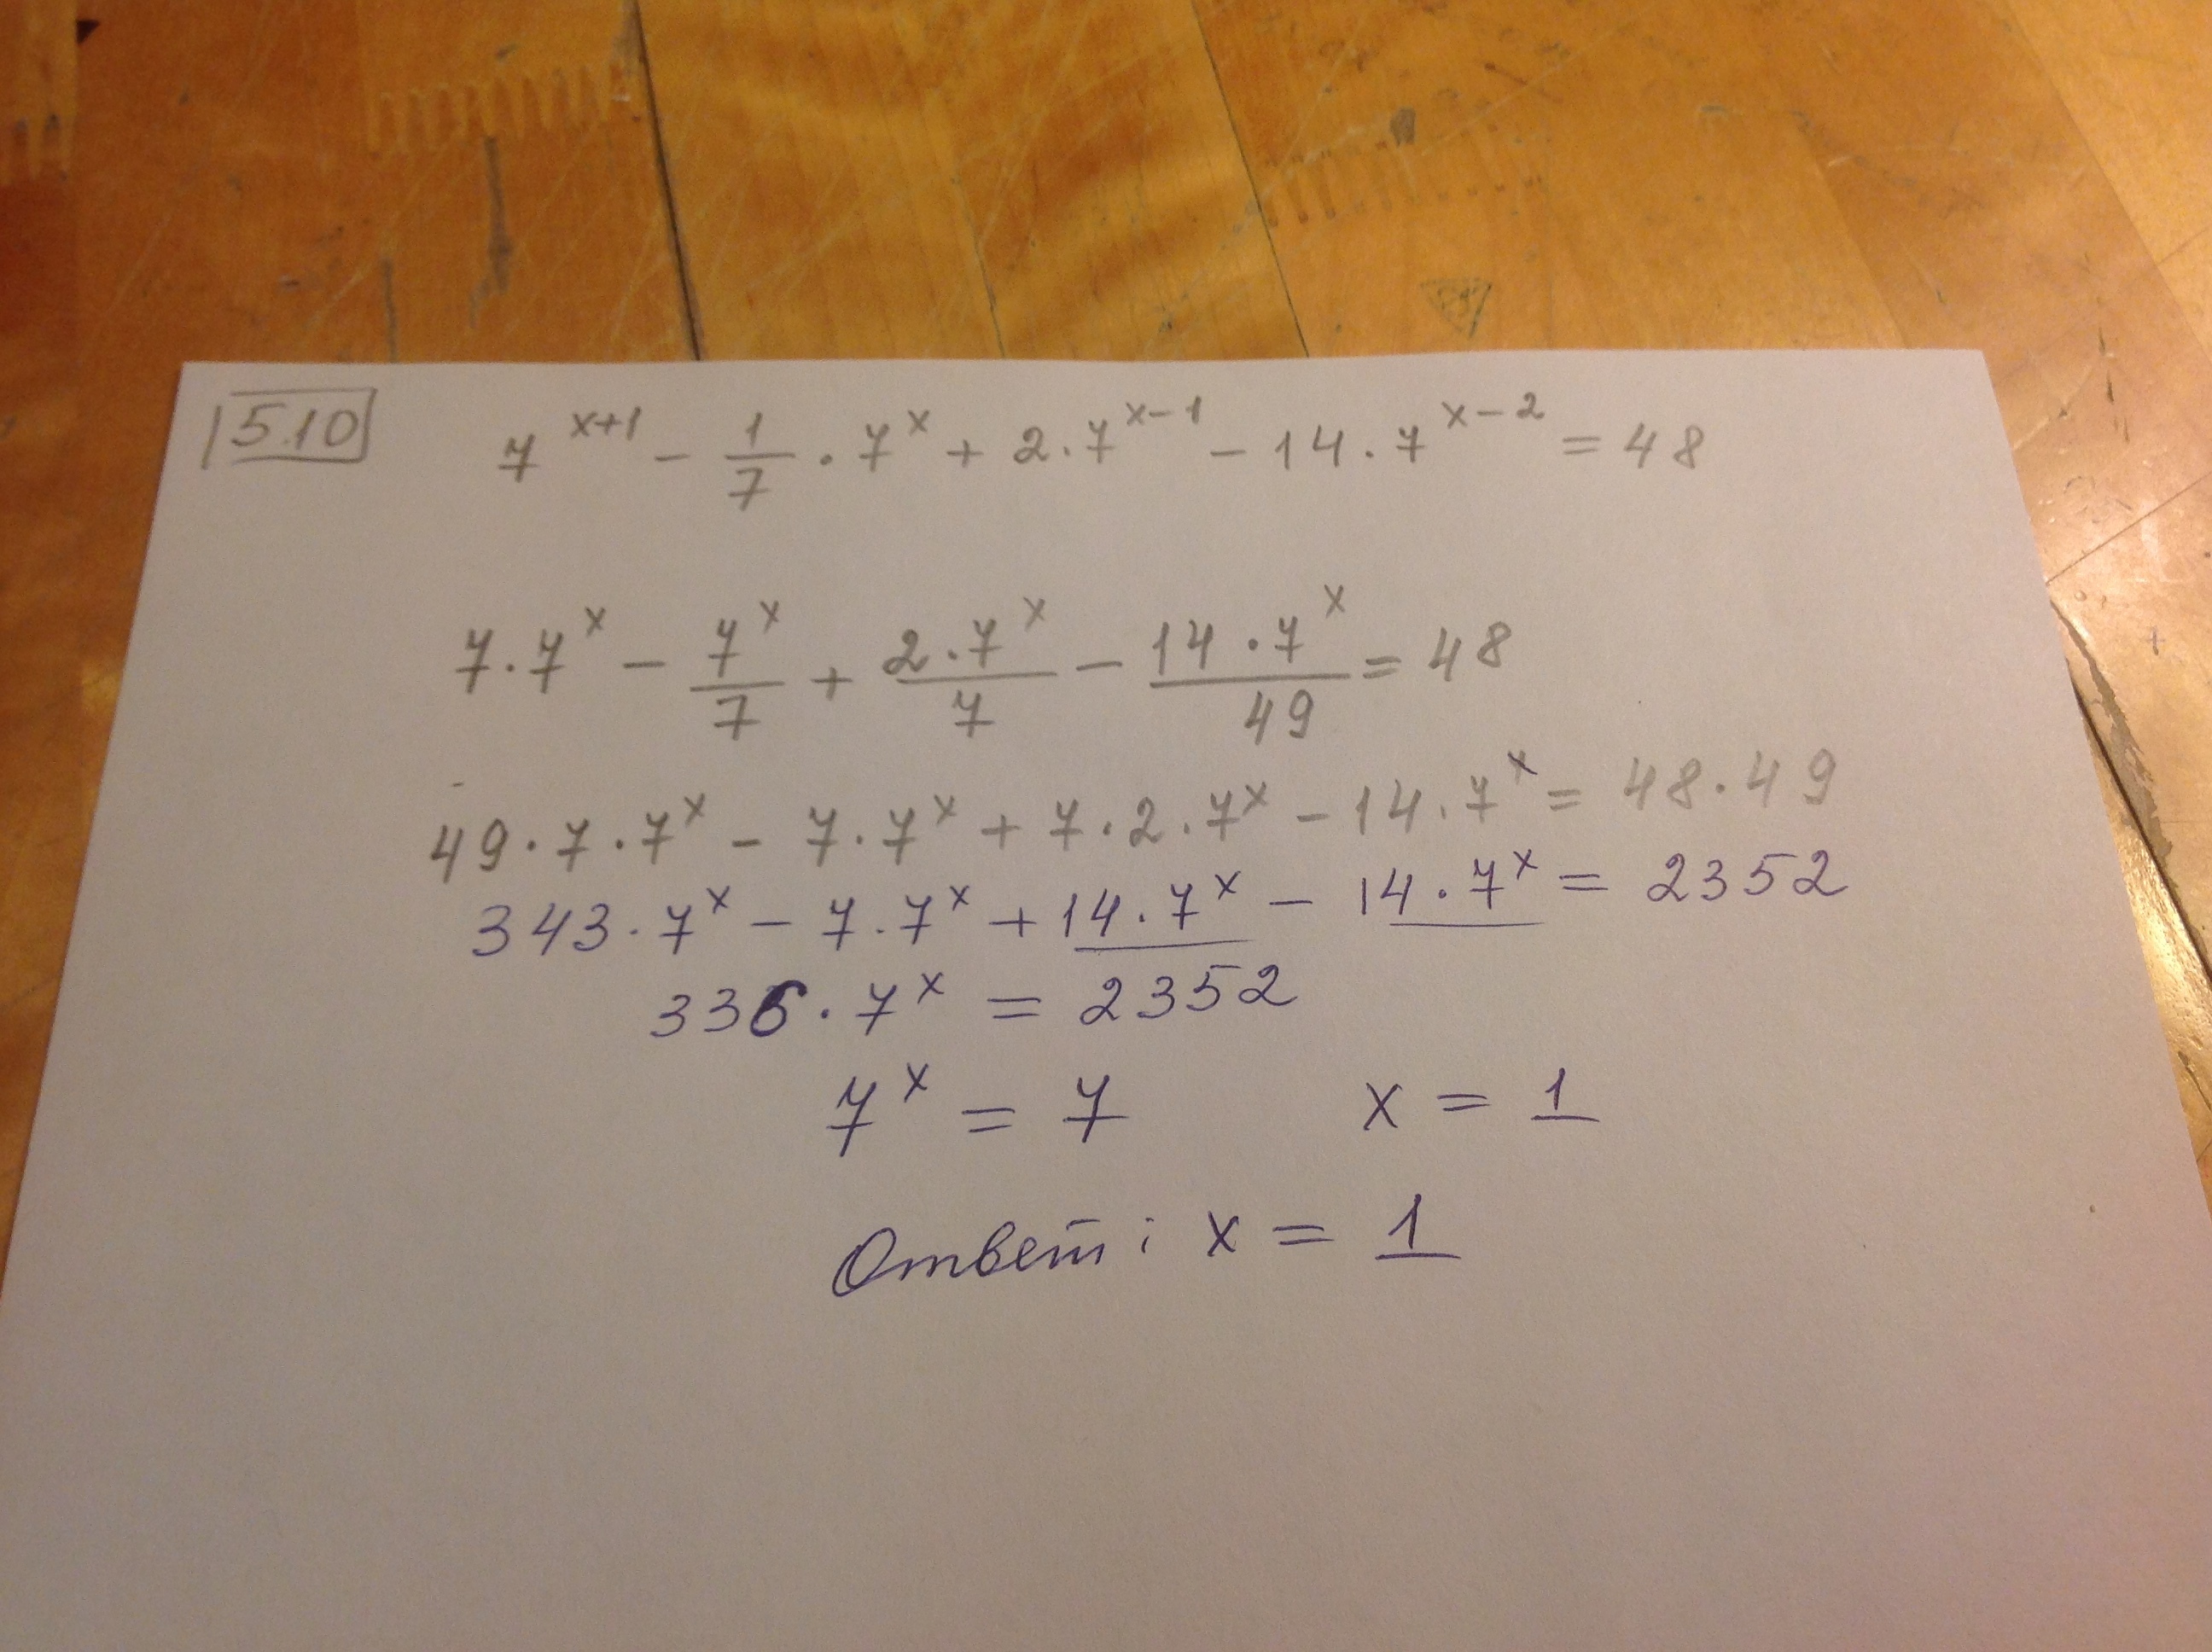 5.10 7^{x+1} - \frac{1}{7} · 7^x + 2 · 7^{x-1} - 14 · 7^{x-2} = 48
7 · 7^x - \frac{7^x}{7} + \frac{2 · 7^x}{7} - \frac{14 · 7^x}{49} = 48
49 · 7 · 7^x - 7 · 7^x + 7 · 2 · 7^x - 14 · 7^x = 48 · 49
343 · 7^x - 7 · 7^x + 14 · 7^x - 14 · 7^x = 2352
336 · 7^x = 2352
7^x = 7 x = 1
Ответ: x = 1